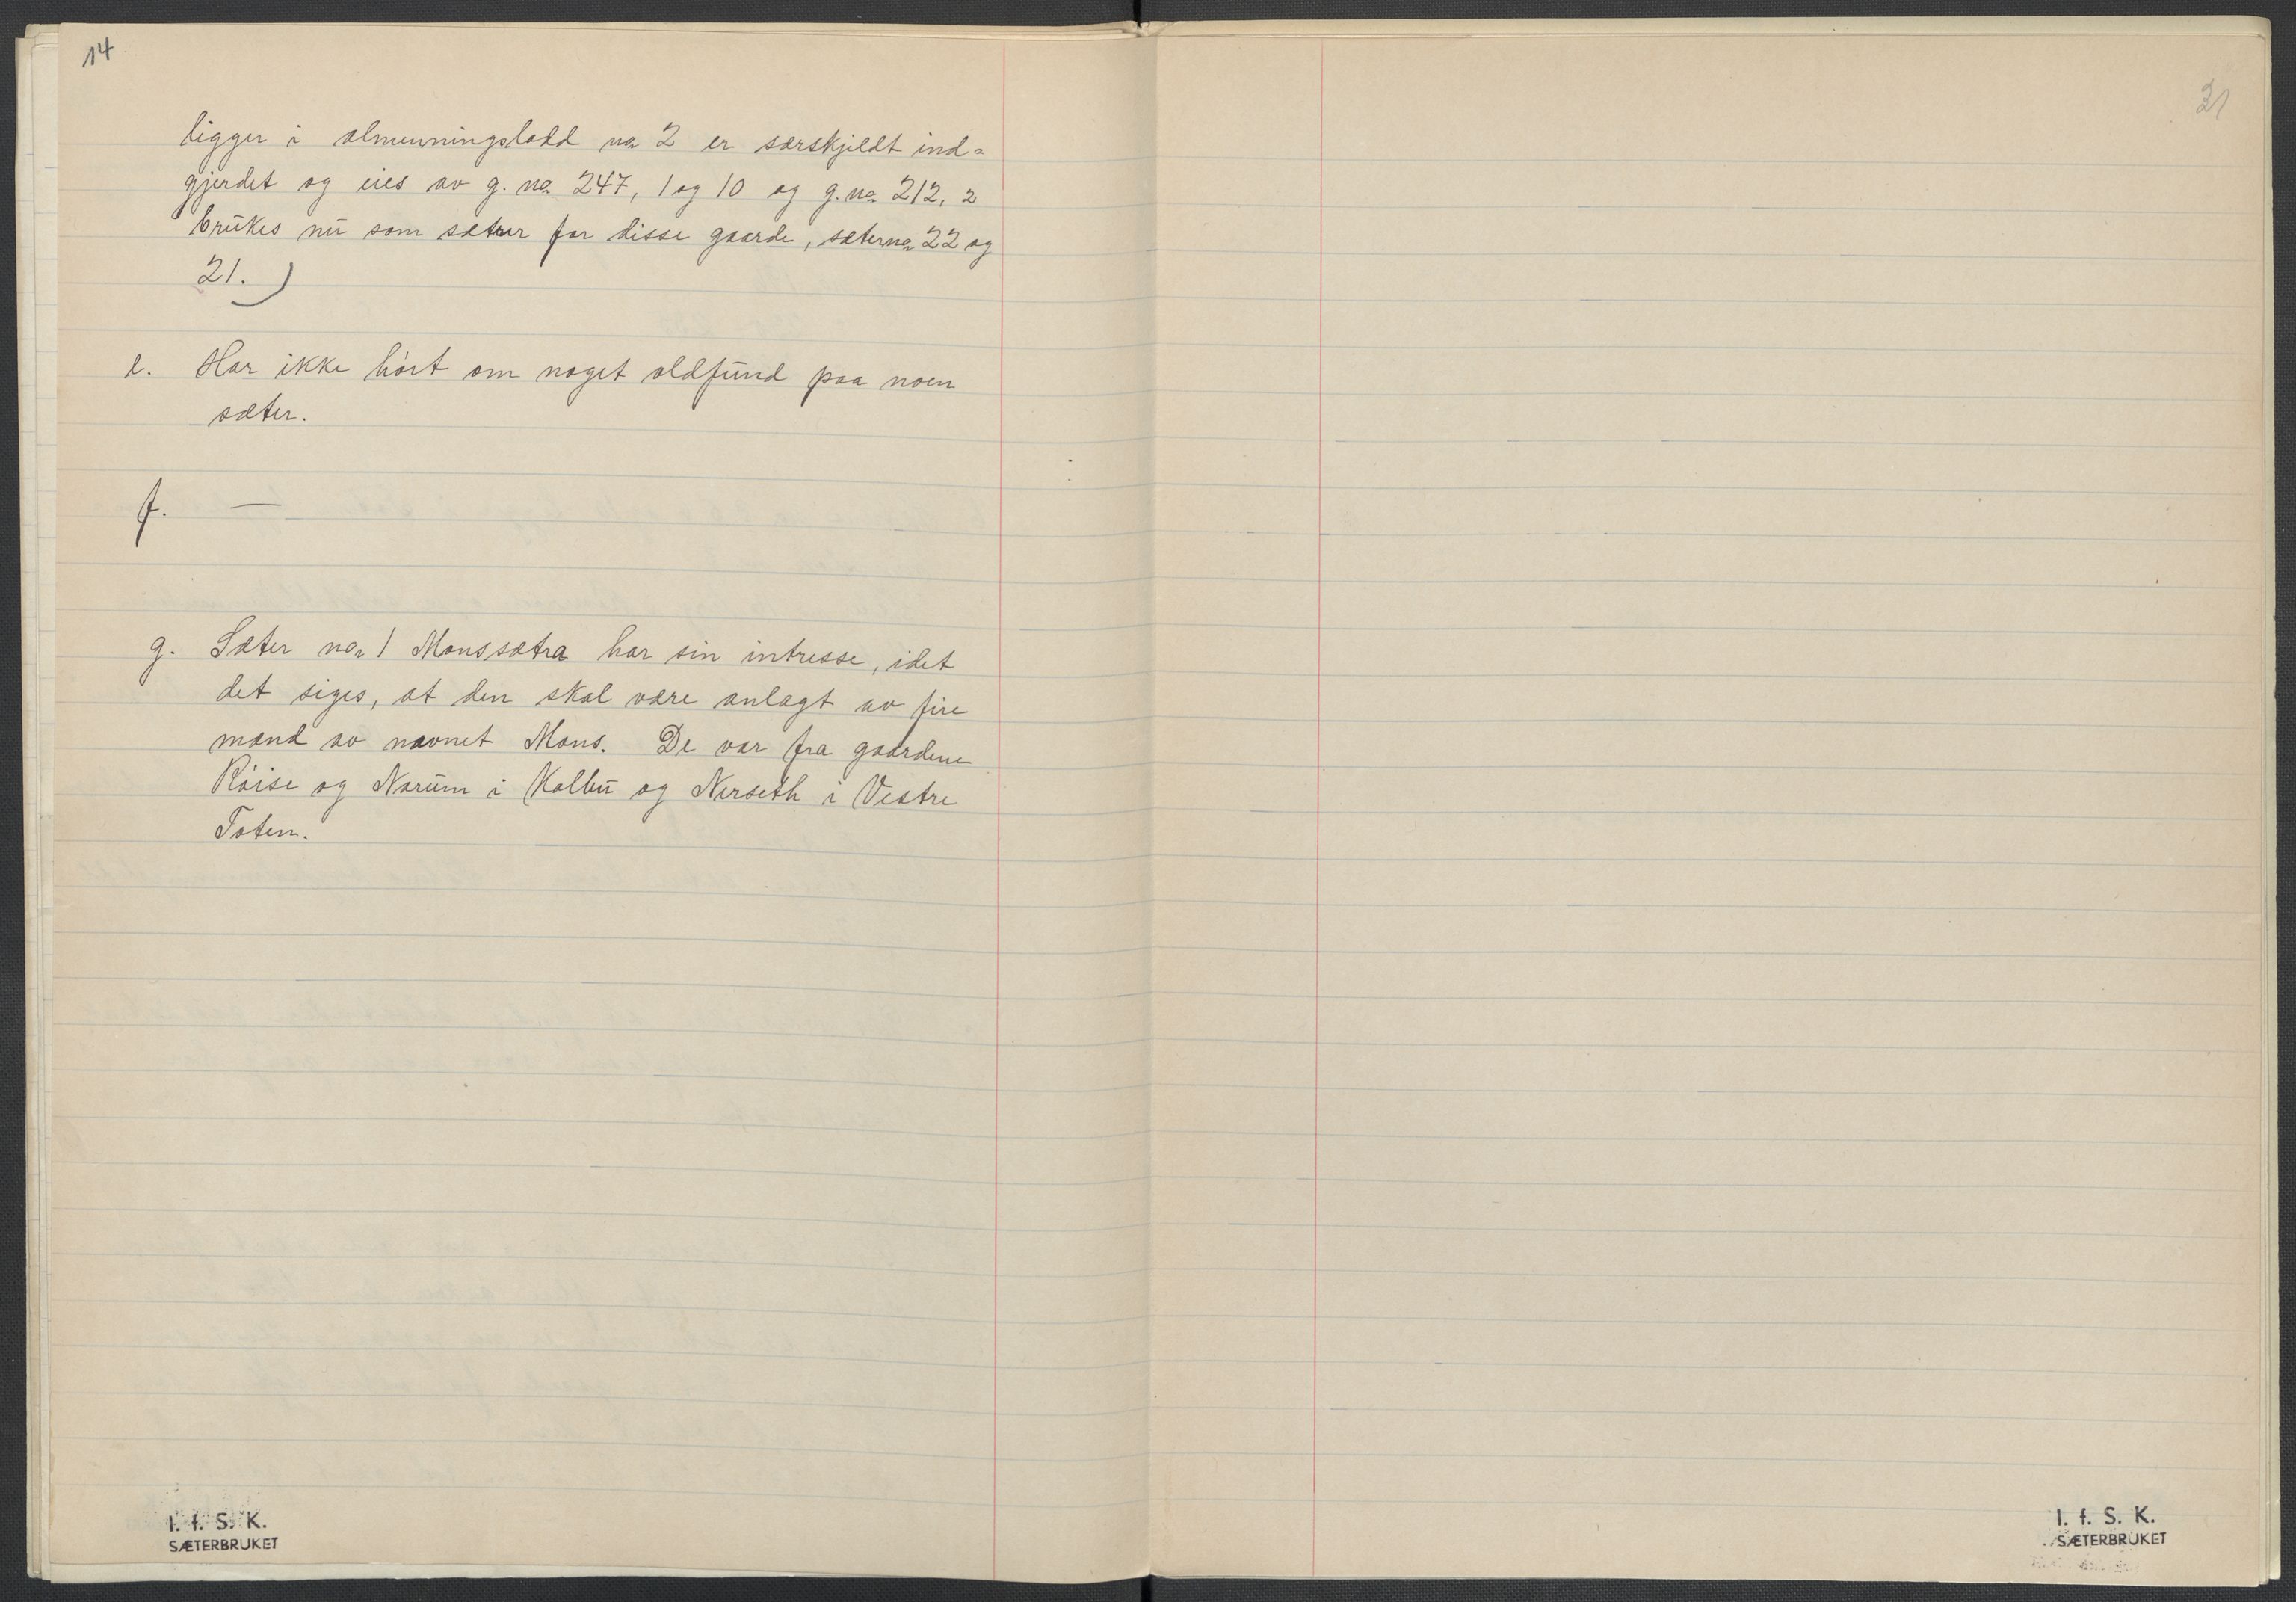 14
ligger i almenningslodd no 2 er særskjeldt ind=
gjerdet og eies av g. no 247, 1 og 10 og g. no 212, 2
brukes nu som sætrer for disse gaarde, sæterno 22 og
21.)
e. Har ikke hørt om noget oldfund paa noen
sæter.
f. —
g. Sæter no 1 Monssætra har sin intresse, idet
det siges, at den skal være anlagt av fire
mænd av navnet Mons. De var fra gaardene
Røise og Narum i Kolbu og Nerseth i Vestre
Toten.
I. f. S. K.
SÆTERBRUKET
31
I. f. S. K.
SÆTERBRUKET